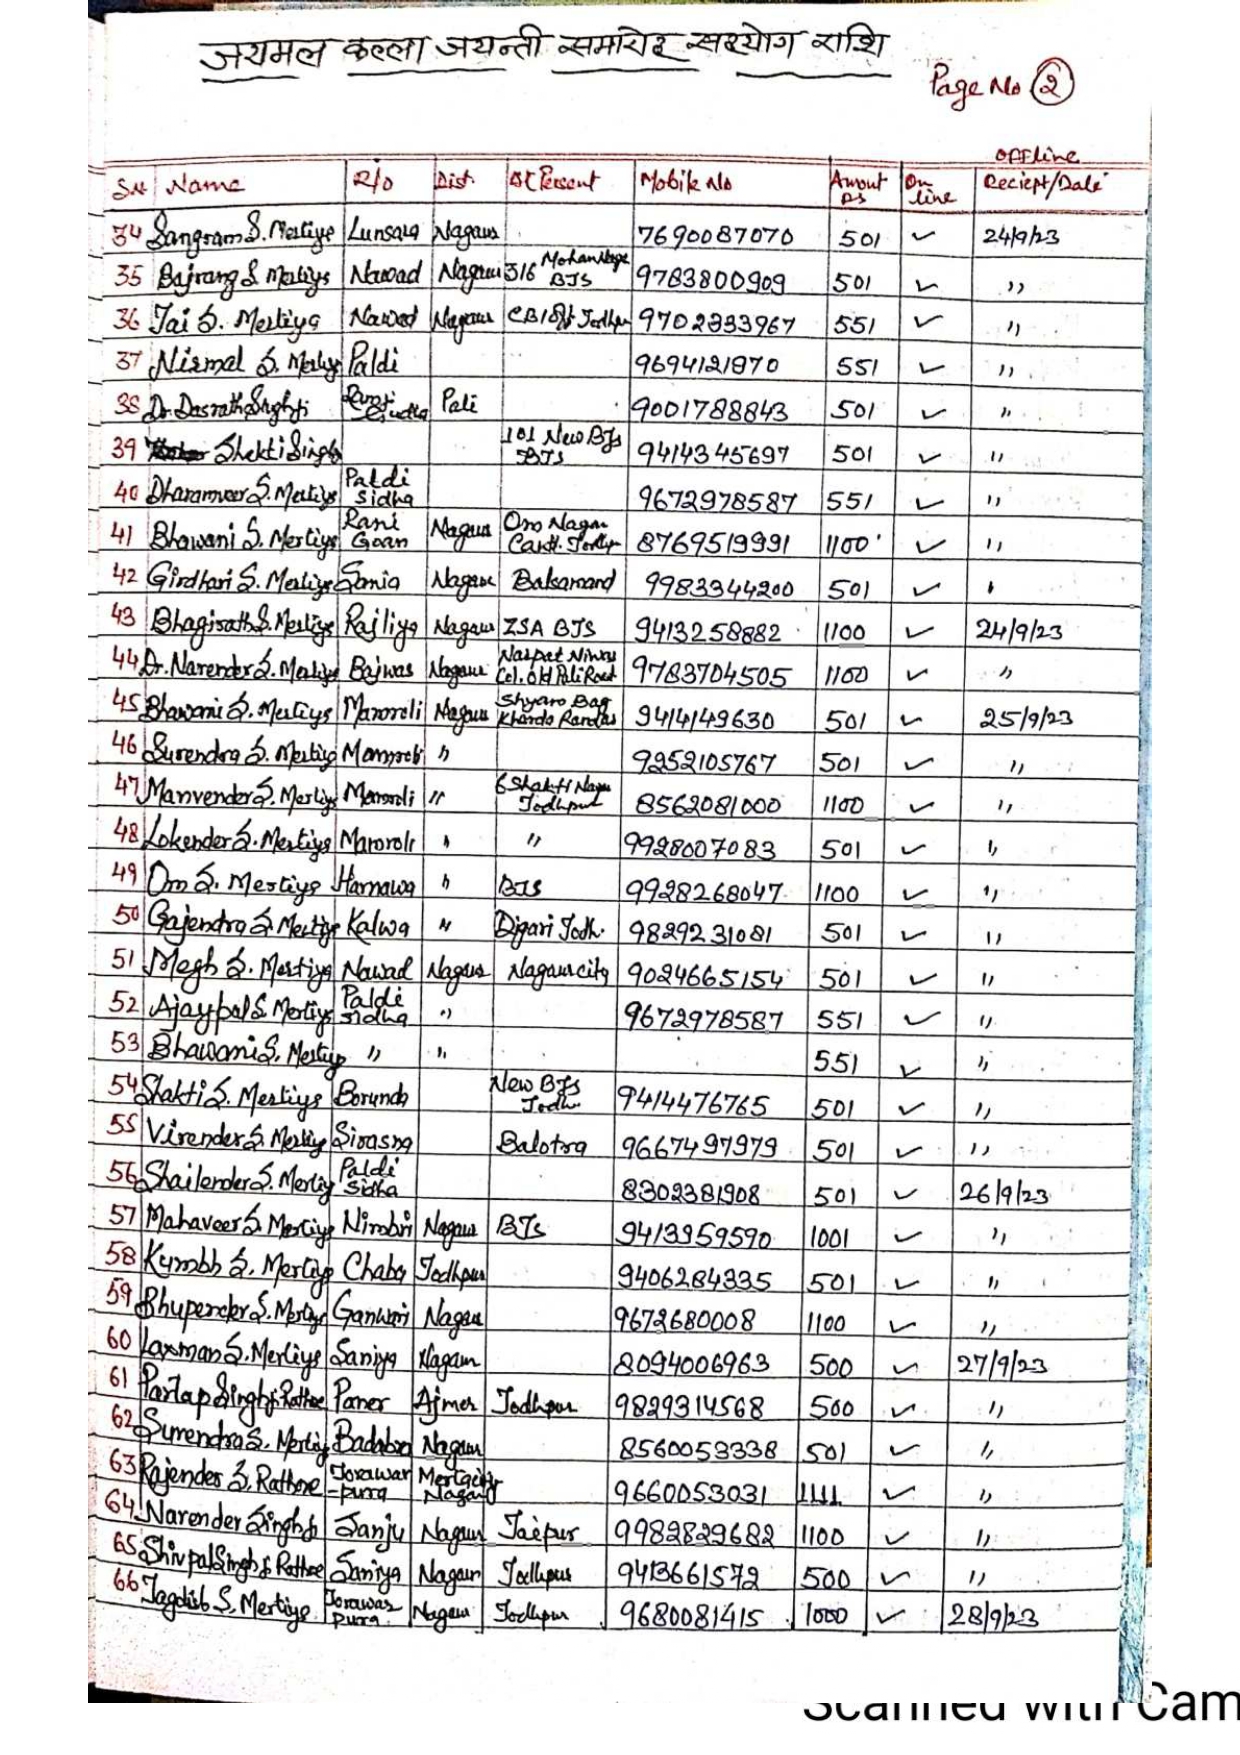 जयमल कल्ला जयन्ती समारोह सहयोग राशि
Page No 2
OFFline
S.N Name R/o Dist. At Persent Mobile No Amount Rs On line Reciept/Date
34 Sangram S. Mertiya Lunsara Nagaur 7690087070 501 ✓ 24/9/23
35 Bajrang S Mertiya Nawad Nagaur 316 BJS 9783800909 501 ✓ "
36 Jai S. Mertiya Nawad Nagaur Jodhpur 9702333967 551 ✓ "
37 Nirmal S. Mertiya Paldi 9694121970 551 ✓ "
38 Dr. Dasrath Singhji Pali 9001788843 501 ✓ "
39 Shakti Singh 101 New BJS BJS 9414345697 501 ✓ "
40 Dharamveer S. Mertiya Paldi Sidha 9672978587 551 ✓ "
41 Bhawani S. Mertiya Rani Goan Nagaur Om Nagar Cantt. Jodhpur 8769519991 1100 ✓ "
42 Girdhari S. Mertiya Sania Nagaur Balsamand 9983344200 501 ✓ "
43 Bhagirath S. Mertiya Rajliya Nagaur ZSA BJS 9413258882 1100 ✓ 24/9/23
44 Dr. Narender S. Mertiya Bajwas Nagaur Narpat Niwas Col. Old Pali Road 9783704505 1100 ✓ "
45 Bhawani S. Mertiya Mamroli Nagaur Shyam Bag Khanda 9414149630 501 ✓ 25/9/23
46 Surendra S. Mertiya Mamroli " 9252105767 501 ✓ "
47 Manvender S. Mertiya Mamroli " 6 Shakti Nagar Jodhpur 8562081000 1100 ✓ "
48 Lokender S. Mertiya Mamroli " " 9928007083 501 ✓ "
49 Om S. Mertiya Harnawa " BJS 9928268047 1100 ✓ "
50 Gajendra S Mertiya Kalwa " Digari Jodh. 9829231081 501 ✓ "
51 Megh S. Mertiya Nawad Nagaur Nagaur city 9024665154 501 ✓ "
52 Ajaypal S Mertiya Paldi Sidha " 9672978587 551 ✓ "
53 Bhawani S. Mertiya " " 551 ✓ "
54 Shakti S. Mertiya Borunda New BJS Jodh. 9414476765 501 ✓ "
55 Virender S. Mertiya Sirasna Balotra 9667497979 501 ✓ "
56 Shailender S. Mertiya Paldi Sidha 8302381908 501 ✓ 26/9/23
57 Mahaveer S. Mertiya Nimbri Nagaur BJS 9413959590 1001 ✓ "
58 Kumbh S. Mertiya Chaba Jodhpur 9406284335 501 ✓ "
59 Bhupender S. Mertiya Ganwari Nagaur 9672680008 1100 ✓ "
60 Laxman S. Mertiya Saniya Nagaur 8094006963 500 ✓ 27/9/23
61 Partap Singhji Rathore Paner Ajmer Jodhpur 9829314568 500 ✓ "
62 Surendra S. Mertiya Badabra Nagaur 8560053338 501 ✓ "
63 Rajender S. Rathore Jorawar -purra Mertacity Nagaur 9660053031 1111 ✓ "
64 Narender Singhji Janju Nagaur Jaipur 9982829682 1100 ✓ "
65 Shivpal Singh Ji Rathore Saniya Nagaur Jodhpur 9413661572 500 ✓ "
66 Jagdish S. Mertiya Jorawar purra Nagaur Jodhpur 9680081415 1000 ✓ 28/9/23
Scanned with Cam